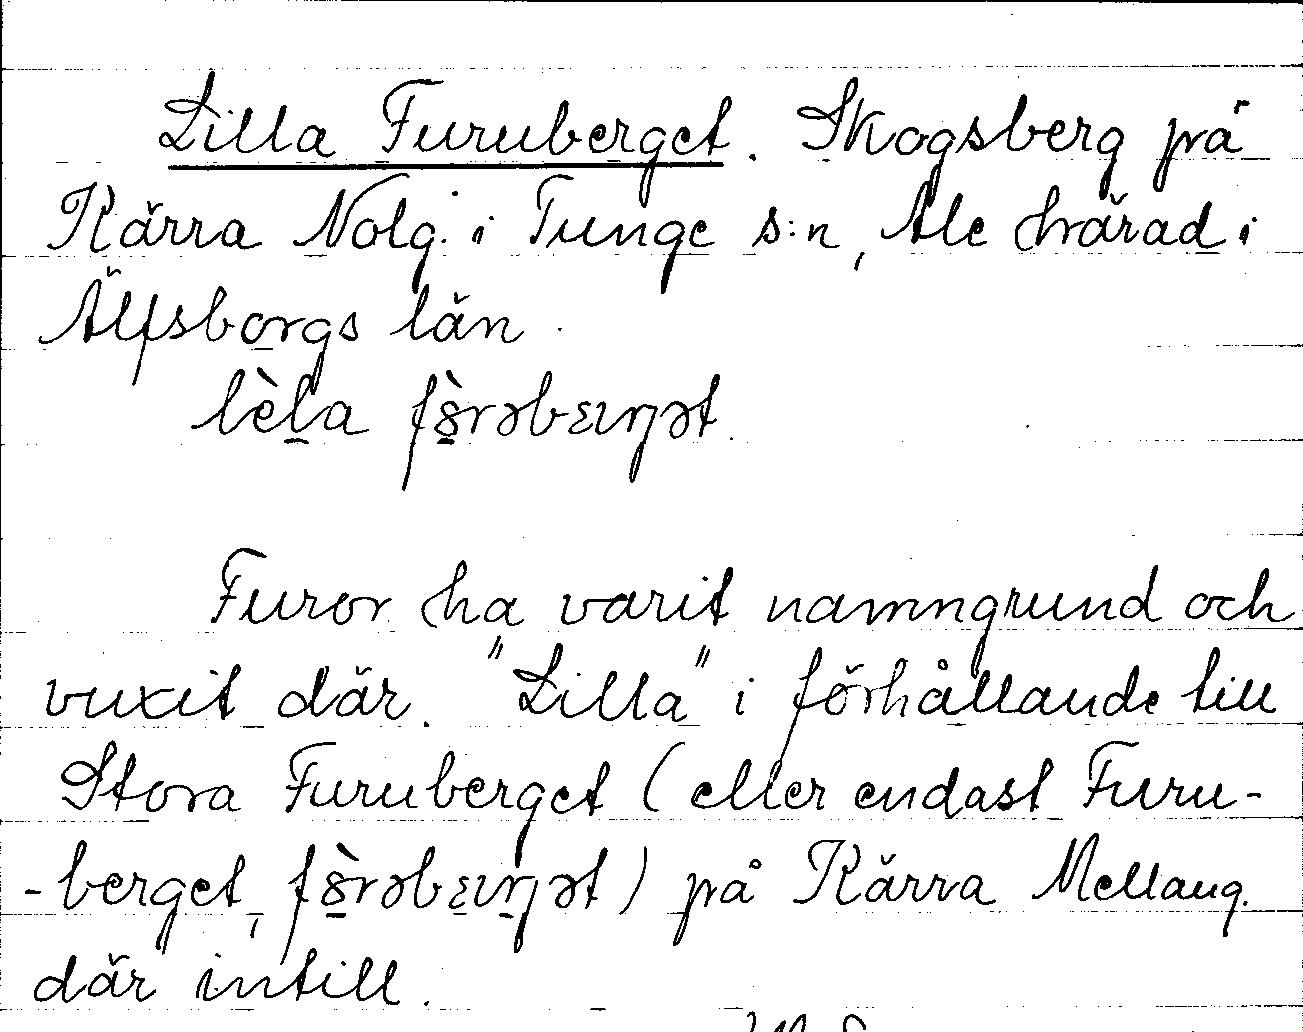 Lilla Furuberget. Skogsberg på
Kärra Nolg. i Tunge s:n, Ale härad i
Älfsborgs län.
Furor ha varit namngrund och
vuxit där. "Lilla" i förhållande till
Stora Furuberget (eller endast Furu-
-berget, ) på Kärra Mellang.
där intill.